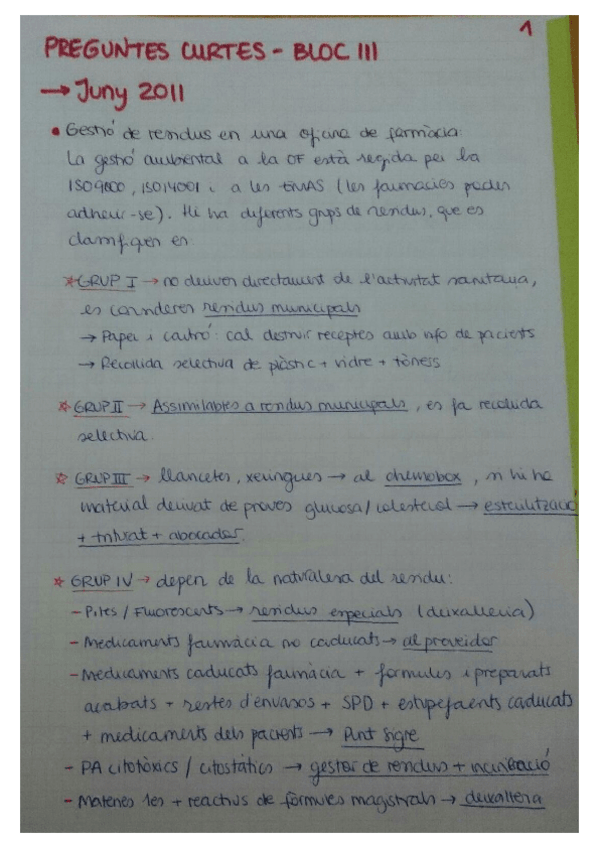 1
PREGUNTES CURTES - BLOC III
→ Juny 2011
• Gestió de residus en una oficina de farmàcia:
La gestió ambiental a la OF està regida per la
ISO9000, ISO14001 i a les EMAS (les farmàcies poden
adherir-se). Hi ha diferents grups de residus, que es
classifiquen en:
* GRUP I → no deriven directament de l'activitat sanitària,
es consideren residus municipals
→ Paper i cartró: cal destruir receptes amb info de pacients
→ Recollida selectiva de plàstic + vidre + tòners
* GRUP II → Assimilables a residus municipals, es fa recollida
selectiva.
* GRUP III → llancetes, xeringues → al chemobox, si hi ha
material derivat de proves glucosa/colesterol → esterilització
+ triturat + abocador.
* GRUP IV → depen de la naturalesa del residu:
- Piles / Fluorescents → residus especials (deixalleria)
- Medicaments farmàcia no caducats → al proveïdor
- Medicaments caducats farmàcia + fórmules i preparats
acabats + restes d'envasos + SPD + estupefaents caducats
+ medicaments dels pacients → Punt Sigre
- PA citotòxics / citostàtics → gestor de residus + incineració
- Matèries 1es + reactius de fórmules magistrals → deixallera